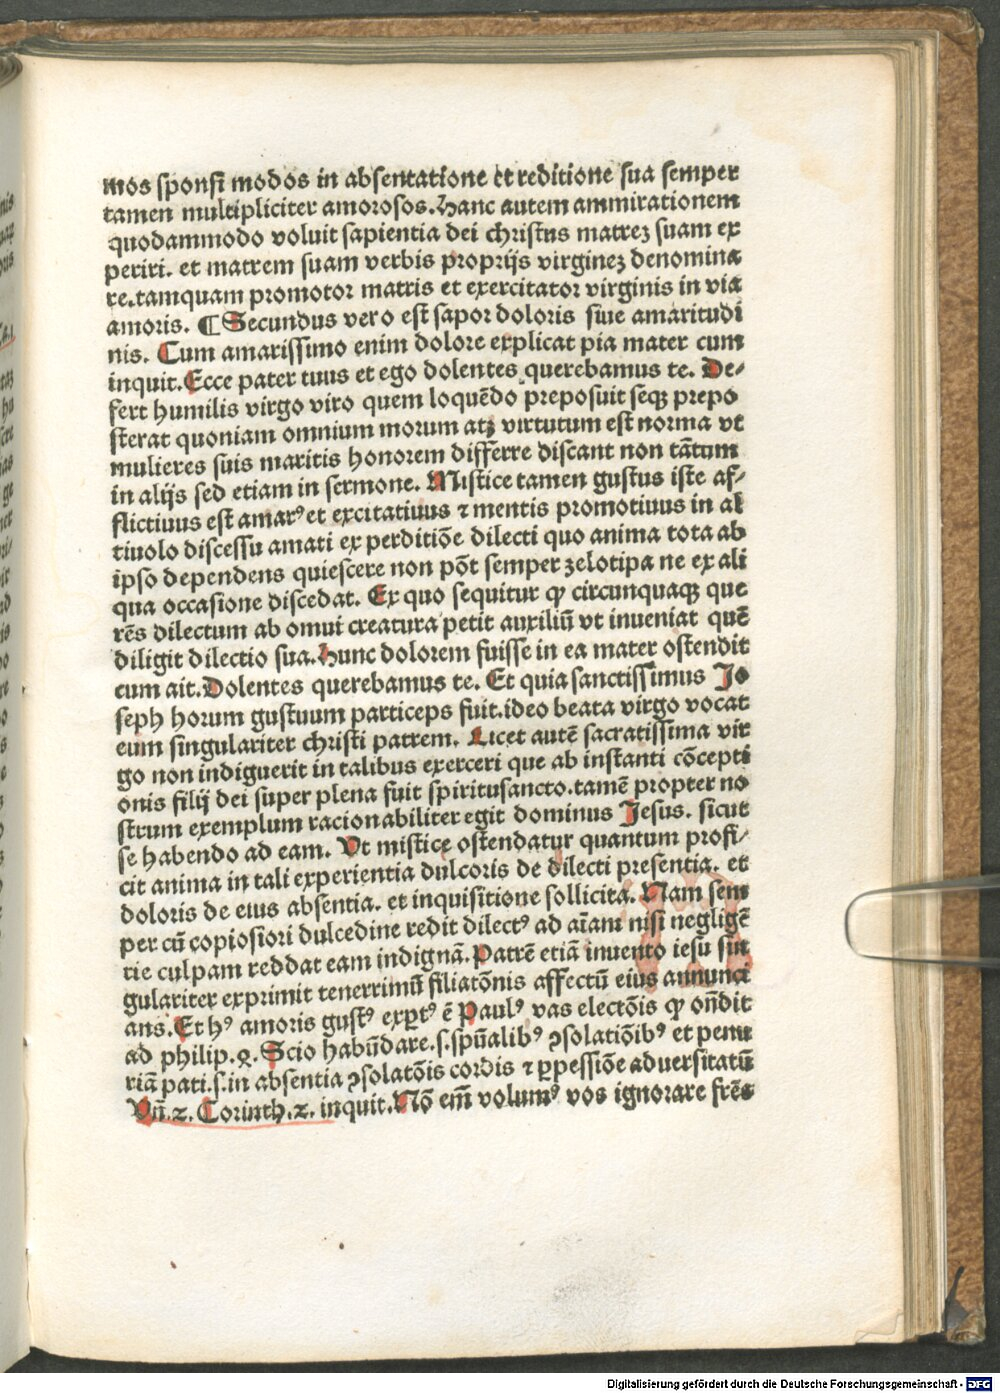 mos sponsi modos in absentatione et reditione sua semper
tamen multipliciter amorosos. Hanc autem ammirationem
quodammodo voluit sapientia dei christus matreꝫ suam ex
periri. et matrem suam verbis proprijs virgineꝫ denomina
re. tamquam promotor matris et exercitator virginis in via
amoris. ¶ Secundus vero est sapor doloris siue amaritudi
nis. Cum amarissimo enim dolore explicat pia mater cum
inquit. Ecce pater tuus et ego dolentes querebamus te. De⸗
fert humilis virgo viro quem loquēdo preposuit seqꝫ prepo
sterat quoniam omnium morum atqꝫ virtutum est norma vt
mulieres suis maritis honorem differre discant non tātum
in alijs sed etiam in sermone. Mistice tamen gustus iste af⸗
flictiuus est amarꝰ et excitatiuus ⁊ mentis promotiuus in al
tiuolo discessu amati ex perditiōe dilecti quo anima tota ab
ipso dependens quiescere non pōt semper zelotipa ne ex ali
qua occasione discedat. Ex quo sequitur ꝙ circunquaqꝫ que
rēs dilectum ab omni creatura petit auxiliū vt inueniat quē
diligit dilectio sua. Hunc dolorem fuisse in ea mater ostendit
cum ait. Dolentes querebamus te. Et quia sanctissimus Jo
seph horum gustuum particeps fuit. ideo beata virgo vocat
eum singulariter christi patrem. Licet autē sacratissima vir
go non indiguerit in talibus exerceri que ab instanti cōcepti
onis filij dei super plena fuit spiritusancto. tamē propter no
strum exemplum racionabiliter egit dominus Jesus. sicut
se habendo ad eam. Vt mistice ostendatur quantum profi⸗
cit anima in tali experientia dulcoris de dilecti presentia. et
doloris de eius absentia. et inquisitione sollicita. Nam sem
per cū copiosiori dulcedine redit dilectꝰ ad aīam nisi negligē
tie culpam reddat eam indignā. Patrē etiā inuento iesu sin
gulariter exprimit tenerrimū filiatōnis affectū eius annunci
ans. Et hꝰ amoris gustꝰ exꝑtꝰ ē Paulꝰ vas electōis ꝙ oñdit
ad philip. 4. Scio habūdare. s. spūalibꝰ ꝯsolatiōibꝰ et penu
riā pati. s. in absentia ꝯsolatōis cordis ⁊ ꝑpessiōe aduersitatū
Vñ. 2. Corinth. 2. inquit. Nō em̄ volumꝰ vos ignorare frēs
Digitalisierung gefördert durch die Deutsche Forschungsgemeinschaft - DFG